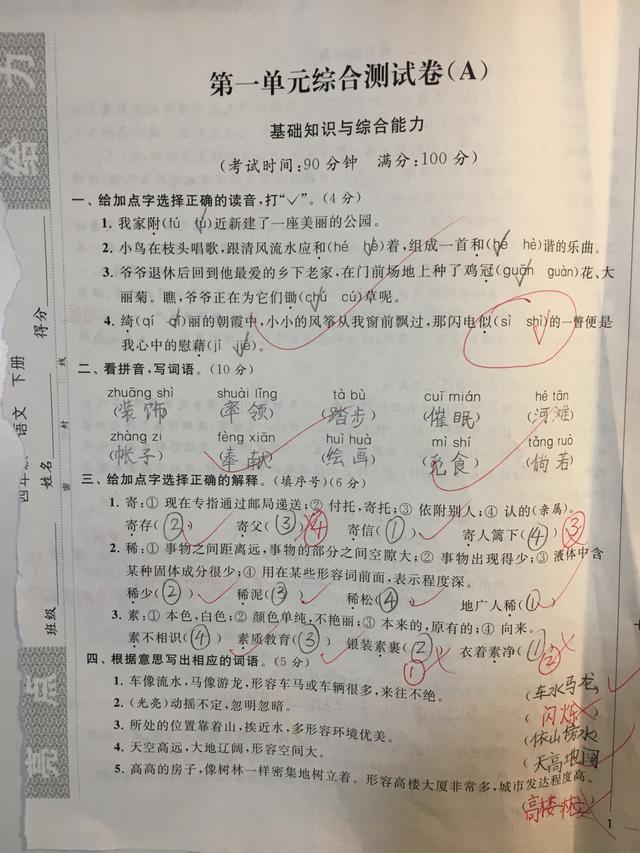 给力
亮点
四年级 语文 下册
得分
姓名
班级
密 封 线
第一单元综合测试卷(A)
基础知识与综合能力
(考试时间:90分钟 满分:100分)
一、给加点字选择正确的读音,打“√”。(4分)
1. 我家附(fú fù)近新建了一座美丽的公园。
2. 小鸟在枝头唱歌,跟清风流水应和(hé hè)着,组成一首和(hé hè)谐的乐曲。
3. 爷爷退休后回到他最爱的乡下老家,在门前场地上种了鸡冠(guān guàn)花、大
丽菊。瞧,爷爷正在为它们锄(chú cú)草呢。
4. 绮(qí qǐ)丽的朝霞中,小小的风筝从我窗前飘过,那闪电似(sì shì)的一瞥便是
我心中的慰藉(jí jiè)。
二、看拼音,写词语。(10分)
zhuāng shì shuài lǐng tà bù cuī mián hé tān
(装饰) (率领) (踏步) (催眠) (河滩)
zhàng zi fèng xiàn huì huà mì shí tǎng ruò
(帐子) (奉献) (绘画) (觅食) (倘若)
三、给加点字选择正确的解释。(填序号)(6分)
1. 寄:① 现在专指通过邮局递送;② 付托,寄托;③ 依附别人;④ 认的(亲属)。
寄存(②) 寄父(③)④ 寄信(①) 寄人篱下(④)③
2. 稀:① 事物之间距离远,事物的部分之间空隙大;② 事物出现得少;③ 液体中含
某种固体成分很少;④ 用在某些形容词前面,表示程度深。
稀少(②) 稀泥(③) 稀松(④) 地广人稀(①)
3. 素:① 本色,白色;② 颜色单纯,不艳丽;③ 本来的,原有的;④ 向来。
素不相识(④) 素质教育(③) 银装素裹(②)① 衣着素净(①)②
四、根据意思写出相应的词语。(5分)
1. 车像流水,马像游龙,形容车马或车辆很多,来往不绝。 (车水马龙)
2. (光亮)动摇不定,忽明忽暗。 (闪烁)
3. 所处的位置靠着山,挨近水,多形容环境优美。 (依山傍水)
4. 天空高远,大地辽阔,形容空间大。 (天高地阔)
5. 高高的房子,像树林一样密集地树立着。形容高楼大厦非常多,城市发达程度高。
(高楼林)
1